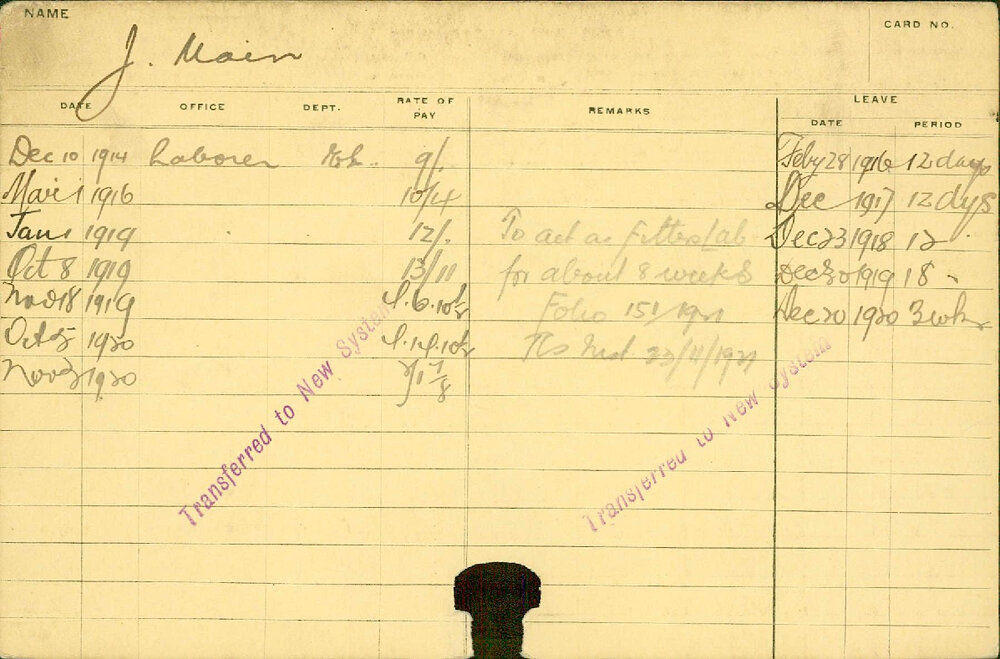 NAME
CARD NO.
J. Main
DATE OFFICE DEPT. RATE OF PAY REMARKS LEAVE
DATE PERIOD
Dec 10 1914 Laborer 9/. Feby 28 1916 12 days
Mar 1 1916 10/4 Dec 1917 12 dys
Jan 1 1919 12/. To act as Fitters Lab Dec 23 1918 12
Oct 8 1919 13/11 for about 8 weeks Dec 20 1919 18
Nov 18 1919 Folio 151/1921 Dec 20 1920 3 wks
Oct 5 1920 23/11/1921
Nov 1920
Transferred to New System
Transferred to New System